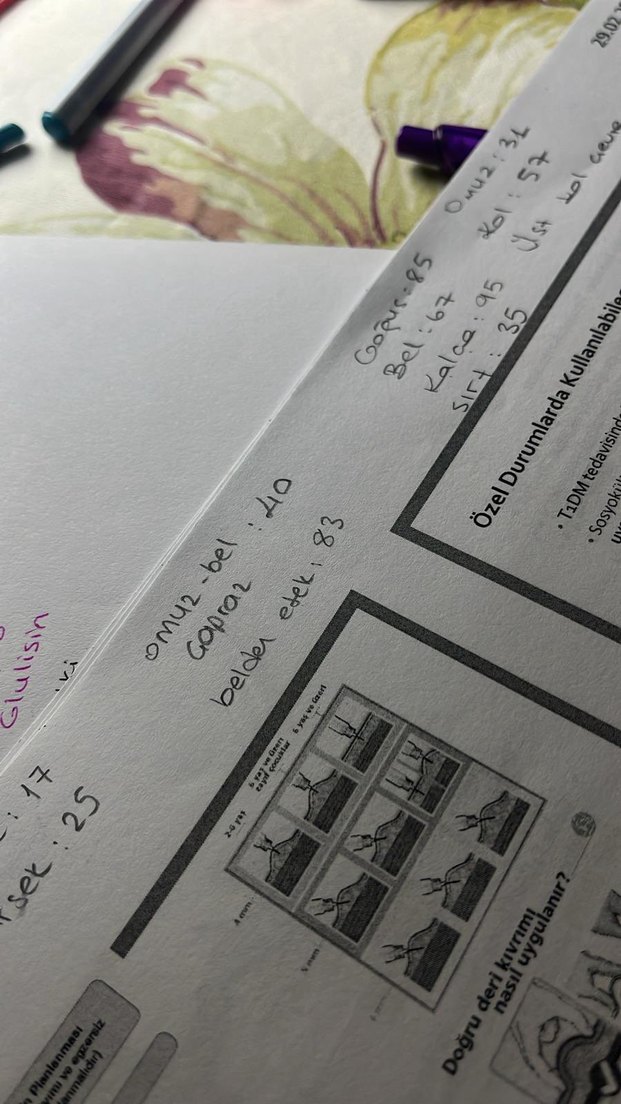 29.02.2
Omuz : 31
Kol : 57
Üst kol çevre
Göğüs : 85
Bel : 67
Kalça : 95
Sırt : 35
Omuz - bel : 40
Çapraz
belden etek : 83
Glulisin
: 17
sek : 25
Özel Durumlarda Kullanılabile
• T1DM tedavisind
• Sosyokül
2-6 yaş
6 yaş ve üzeri
zayıf çocuklar
6 yaş ve üzeri
4 mm
5 mm
Doğru deri kıvrımı
nasıl uygulanır?
n Planlanması
ımı ve egzersiz
lanmalıdır)